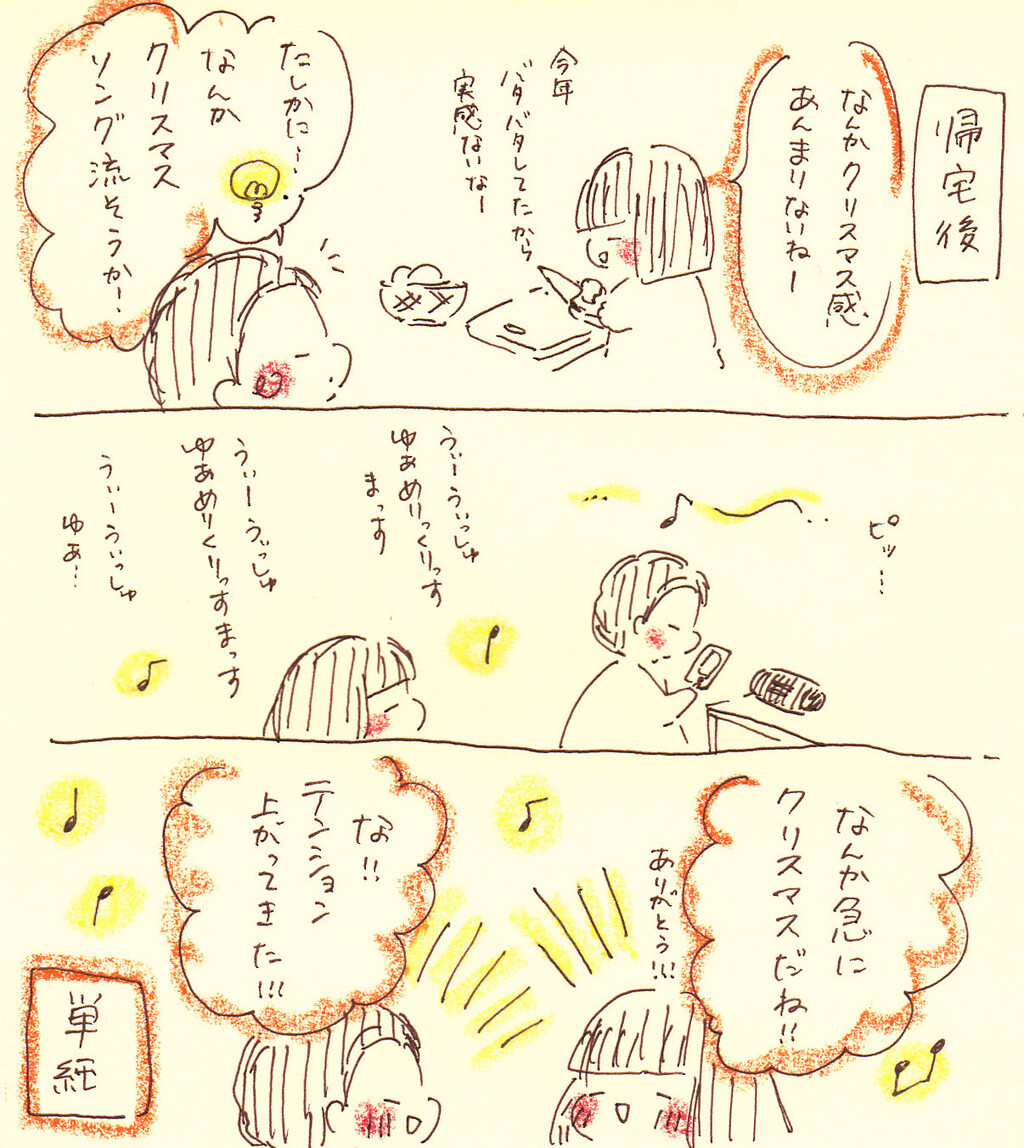 帰宅後
なんかクリスマス感、
あんまりないねー
今年
バタバタしてたから
実感ないなー
たしかに…
なんか
クリスマス
ソング流そうか！
ピッ…
うぃーうぃっしゅ
ゆぁめりっくりっす
まっす
うぃーうぃっしゅ
ゆぁめりくりっすまっす
うぃーうぃっしゅ
ゆぁ…
なんか急に
クリスマスだね!!
ありがとう!!!
な!!
テンション
上がってきた!!!
単純